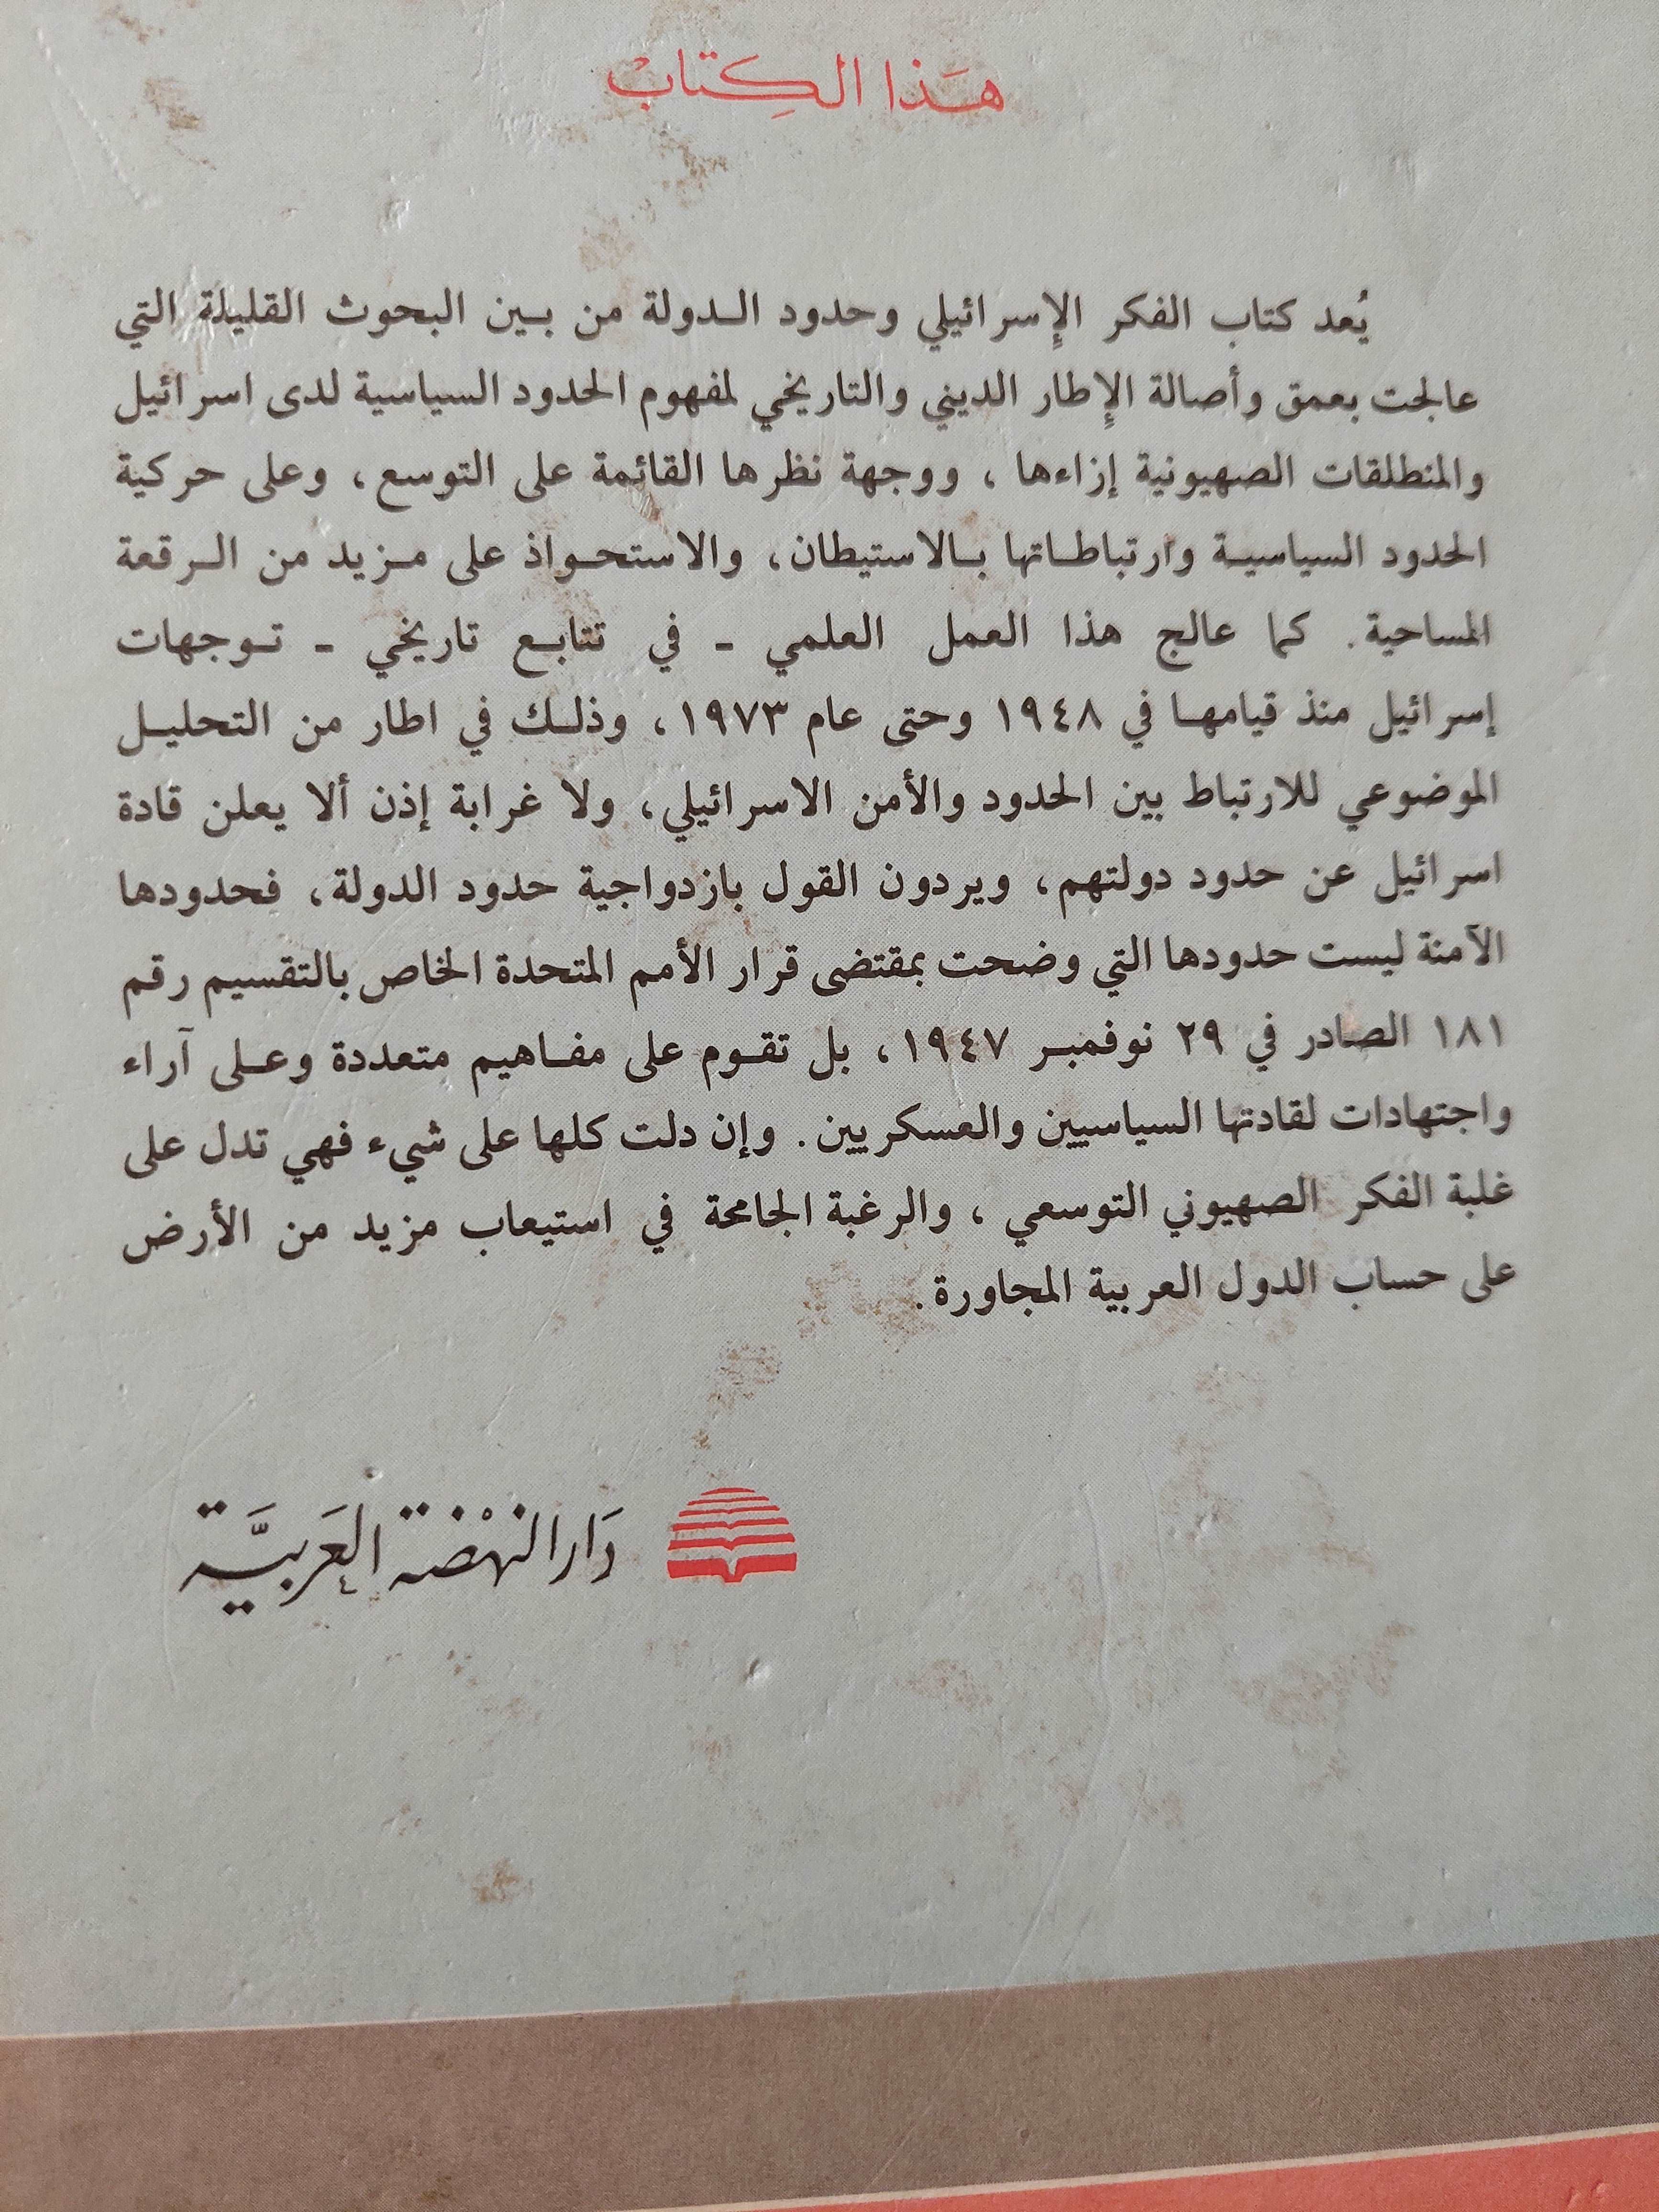 هَذا الكِتابْ
يُعد كتاب الفكر الإِسرائيلي وحدود الـدولة من بـين البحوث القليلة التي
عالجت بعمق وأصالة الإِطار الديني والتاريخي لمفهوم الحدود السياسية لدى اسرائيل
والمنطلقات الصهيونية إزاءها ، ووجهة نظرها القائمة على التوسع، وعلى حركية
الحدود السياسيـة وارتباطـاتها بـالاستيطان، والاستحـواذ على مـزيد من الـرقعة
المساحية. كما عالج هذا العمل العلمي - في تتابـع تاريخي - تـوجهات
إسرائيل منذ قيامهـا في ١٩٤٨ وحتى عام ١٩٧٣، وذلـك في اطار من التحليـل
الموضوعي للارتباط بين الحدود والأمن الاسرائيلي، ولا غرابة إذن ألا يعلن قادة
اسرائيل عن حدود دولتهم، ويردون القول بازدواجية حدود الدولة، فحدودها
الآمنة ليست حدودها التي وضحت بمقتضى قرار الأمم المتحدة الخاص بالتقسيم رقم
١٨١ الصادر في ٢٩ نوفمبـر ١٩٤٧، بل تقـوم على مفـاهيم متعددة وعـلى آراء
واجتهادات لقادتها السياسيين والعسكريين. وإن دلت كلها على شيء فهي تدل على
غلبة الفكر الصهيوني التوسعي ، والرغبة الجامحة في استيعاب مزيد من الأرض
على حساب الدول العربية المجاورة.
دَار النهْضة العَربيَّة